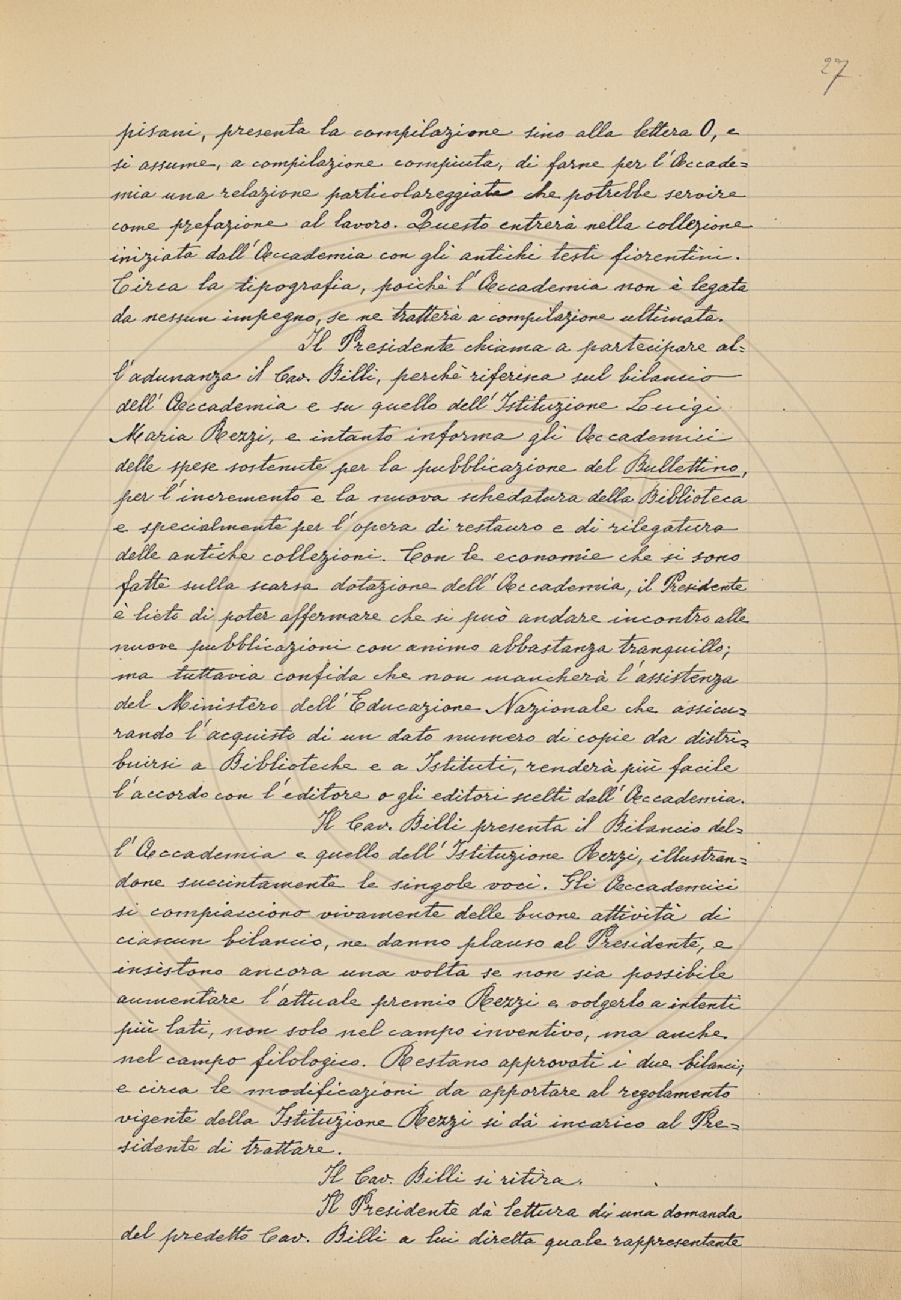 27
pisani, presenta la compilazione sino alla lettera O, e
si assume, a compilazione compiuta, di farne per l'Accade=
mia una relazione particolareggiata che potrebbe servire
come prefazione al lavoro. Questo entrerà nella collezione
iniziata dall'Accademia con gli antichi testi fiorentini.
Circa la tipografia, poichè l'Accademia non è legata
da nessun impegno, se ne tratterà a compilazione ultimata.
Il Presidente chiama a partecipare al=
l'adunanza il Cav. Billi, perchè riferisca sul bilancio
dell'Accademia e su quello dell'Istituzione Luigi
Maria Rezzi, e intanto informa gli Accademici
delle spese sostenute per la pubblicazione del Bullettino,
per l'incremento e la nuova schedatura della Biblioteca
e specialmente per l'opera di restauro e di rilegatura
delle antiche collezioni. Con le economie che si sono
fatte sulla scarsa dotazione dell'Accademia, il Presidente
è lieto di poter affermare che si può andare incontro alle
nuove pubblicazioni con animo abbastanza tranquillo;
ma tuttavia confida che non mancherà l'assistenza
del Ministero dell'Educazione Nazionale che assicu=
rando l'acquisto di un dato numero di copie da distri=
buirsi a Biblioteche e a Istituti, renderà più facile
l'accordo con l'editore o gli editori scelti dall'Accademia.
Il Cav. Billi presenta il Bilancio del=
l'Accademia e quello dell'Istituzione Rezzi, illustran=
done succintamente le singole voci. Gli Accademici
si compiacciono vivamente delle buone attività di
ciascun bilancio, ne danno plauso al Presidente, e
insistono ancora una volta se non sia possibile
aumentare l'attuale premio Rezzi e volgerlo a intenti
più lati, non solo nel campo inventivo, ma anche
nel campo filologico. Restano approvati i due bilanci;
e circa le modificazioni da apportare al regolamento
vigente della Istituzione Rezzi si dà incarico al Pre=
sidente di trattare.
Il Cav. Billi si ritira.
Il Presidente dà lettura di una domanda
del predetto Cav. Billi a lui diretta quale rappresentante